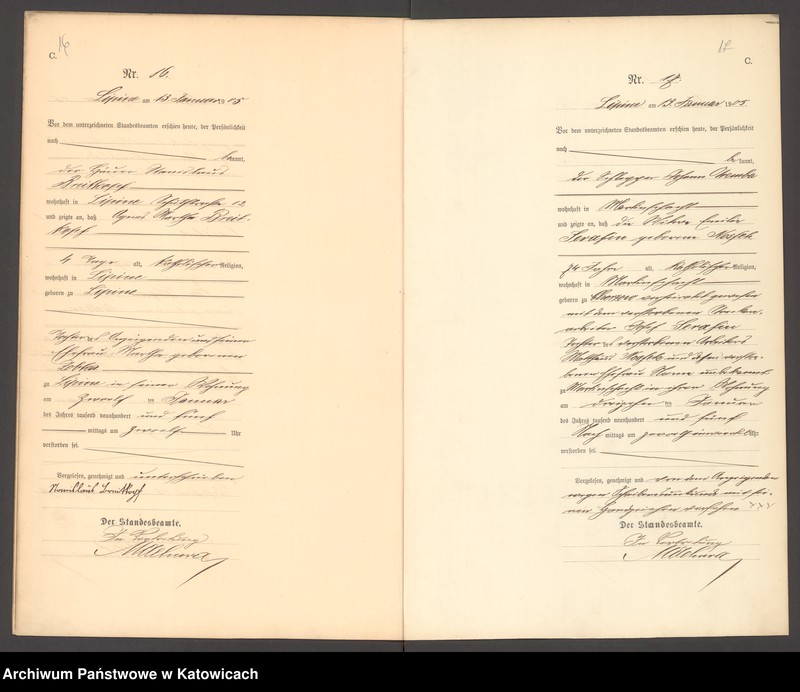 16
C.
Nr. 16.
Lipine am 13 Januar 1905
Vor dem unterzeichneten Standesbeamten erschien heute, der Persönlichkeit
nach
bekannt,
der Häuer Stanislaus
Breitkopf
wohnhaft in Lipine Schulstraße 12
und zeigte an, daß Agnes Martha Breit-
kopf
4 Tage alt, katholischer Religion,
wohnhaft in Lipine
geboren zu Lipine
Tochter des Anzeigenden und seiner
Ehefrau Martha geborenen
zu Lipine in seiner Wohnung
am zwoelf ten Januar
des Jahres tausend neunhundert und fünf
mittags um zwoelf Uhr
verstorben sei.
Vorgelesen, genehmigt und unterschrieben
Stanislaus Breitkopf
Der Standesbeamte.
In Vertretung
17
C.
Nr. 17.
Lipine am 13 Januar 1905.
Vor dem unterzeichneten Standesbeamten erschien heute, der Persönlichkeit
nach
bekannt,
der Schlepper Johann
wohnhaft in Martinschacht
und zeigte an, daß die Witwe
Serafin geborene
74 Jahre alt, katholischer Religion,
wohnhaft in Martinschacht
geboren zu verheiratet gewesen
mit dem verstorbenen
arbeiter Josef Serafin
Tochter des verstorbenen Arbeiters
und dessen verstor-
benen Ehefrau Name unbekannt
zu Martinschacht in ihrer Wohnung
am dreizehn ten Januar
des Jahres tausend neunhundert und fünf
Nach mittags um Uhr
verstorben sei.
Vorgelesen, genehmigt und von dem Anzeigenden
wegen Schreibensunkunde mit sei-
nem Handzeichen versehen XXX
Der Standesbeamte.
In Vertretung
Archiwum Państwowe w Katowicach